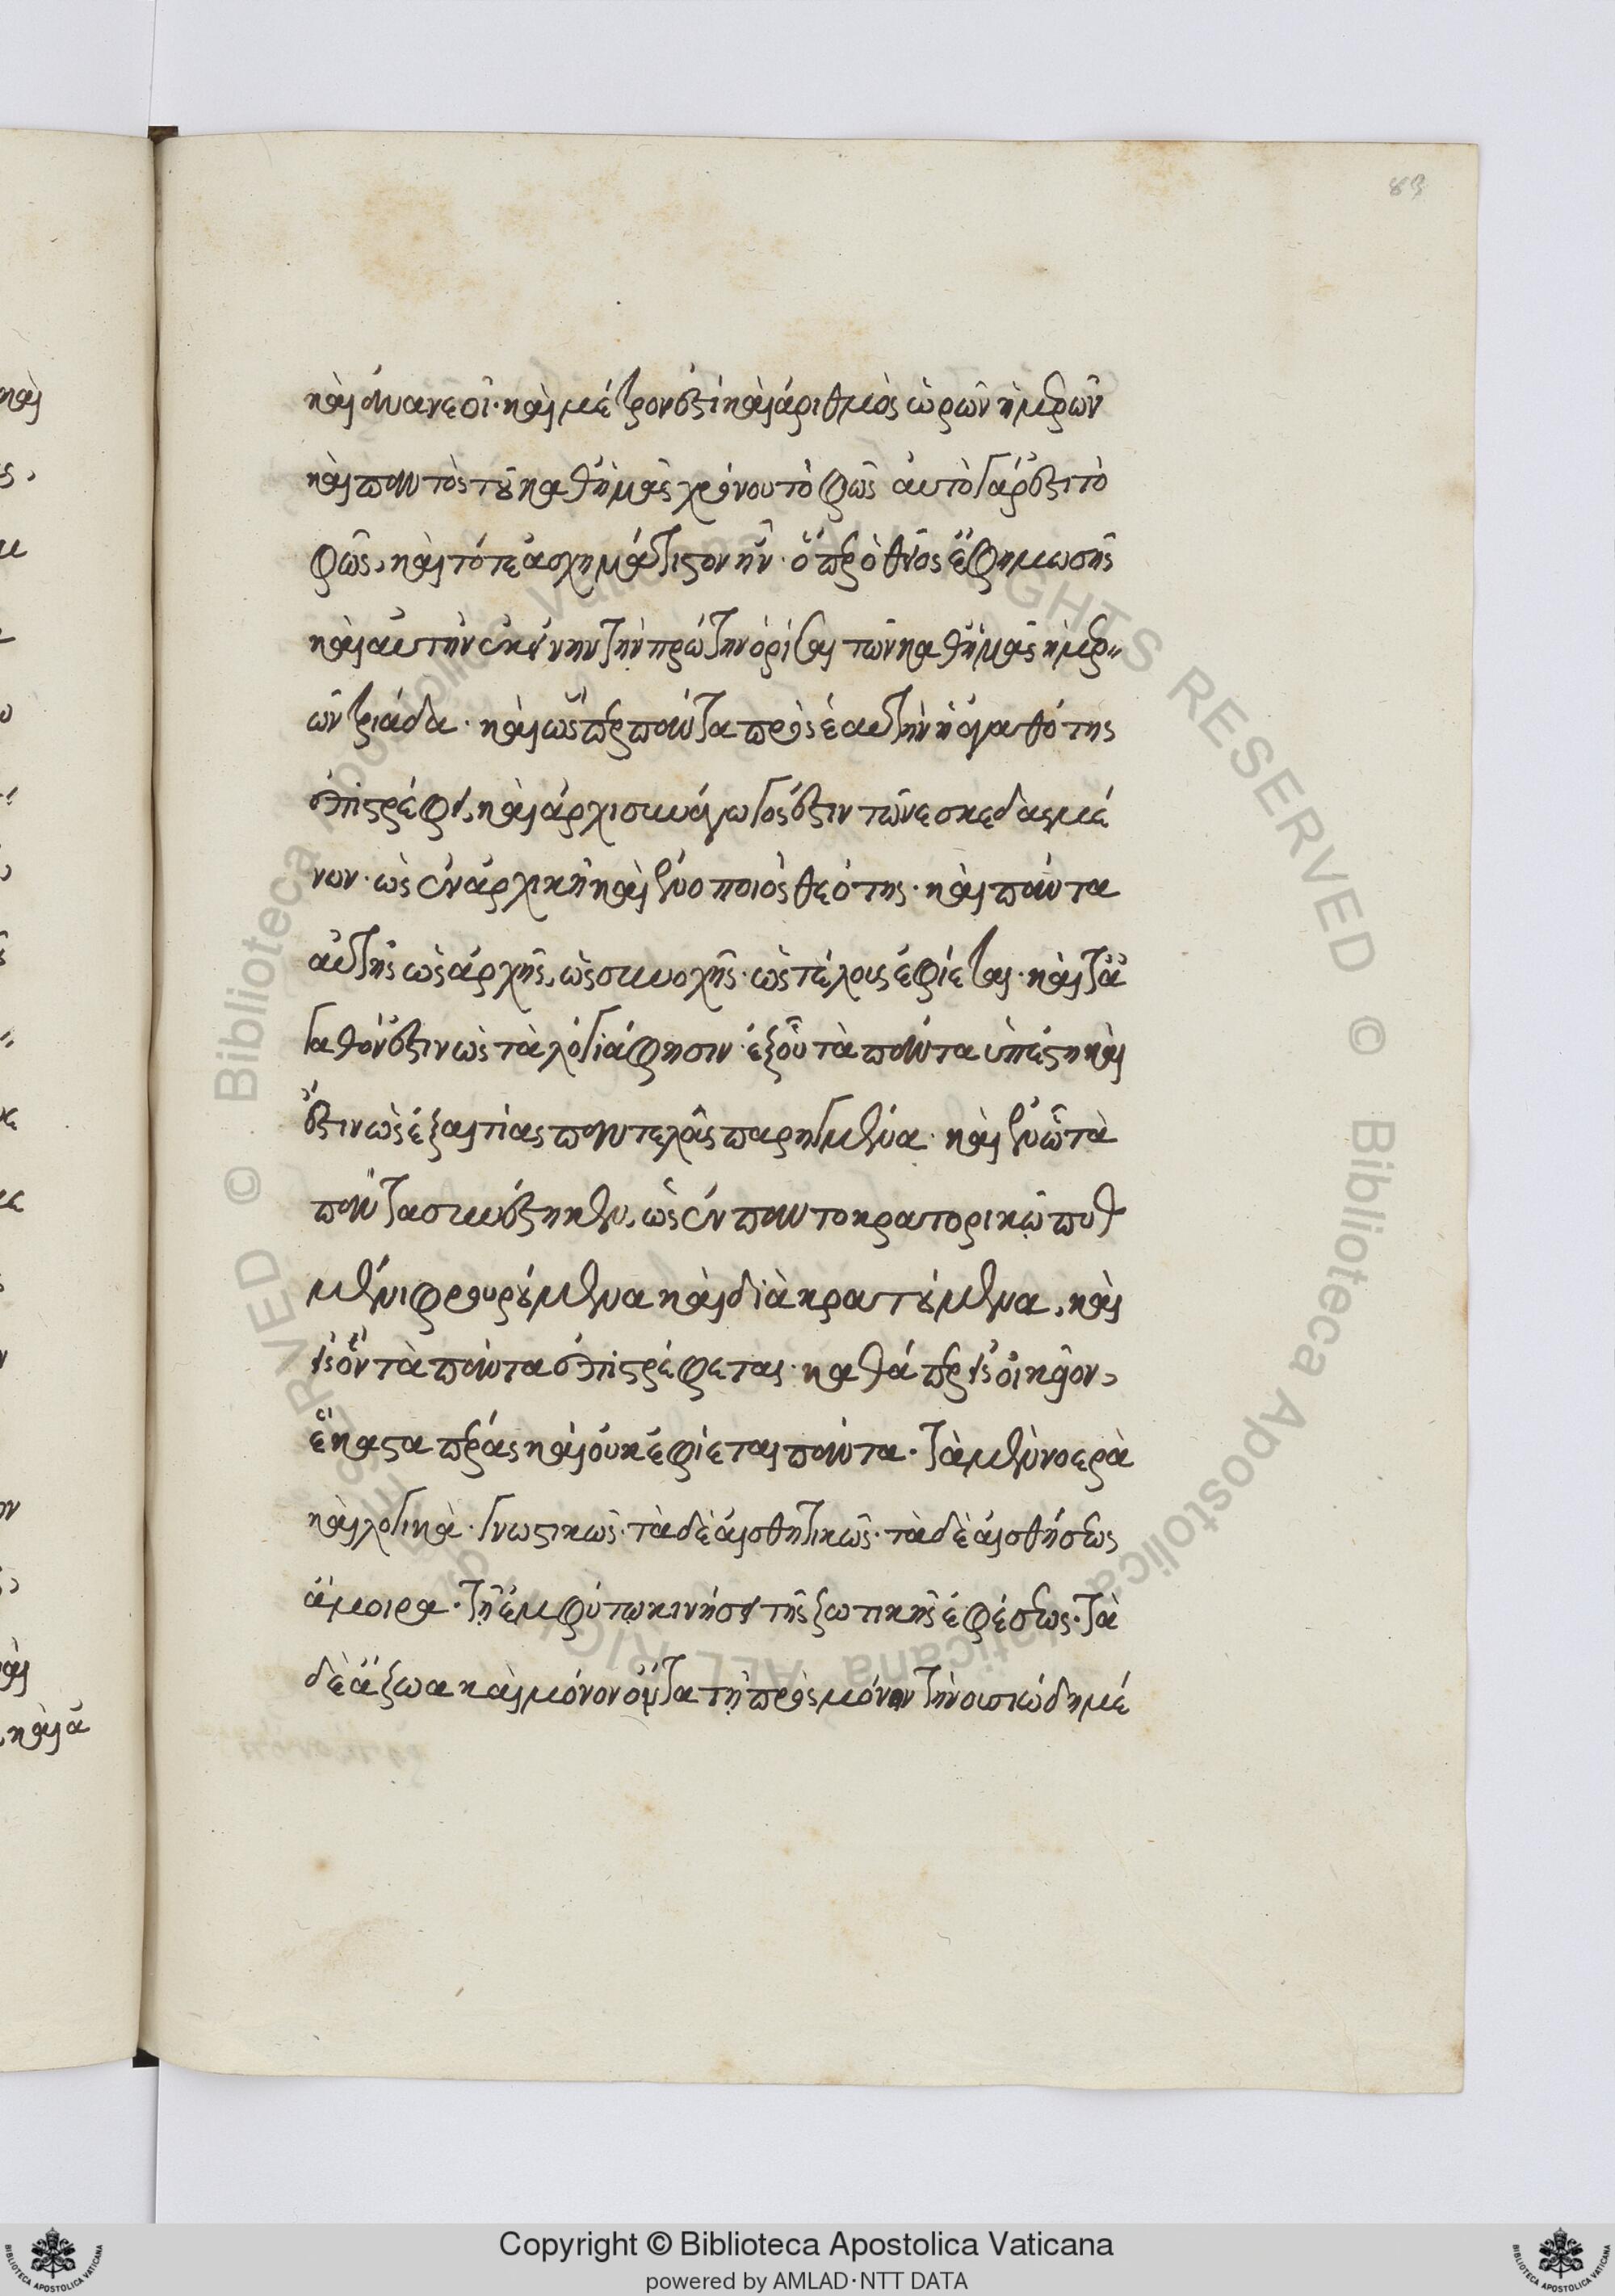 83
καὶ ἀνανεοῖ· καὶ μέτρον ἐστὶ καὶ ἀριθμὸς ὡρῶν ἡμερῶν
καὶ παντὸς τοῦ καθ' ἡμᾶς χρόνου τὸ φῶς αὐτὸ γάρ ἐστι τὸ
φῶς, καὶ τότε ἀσχημάτιστον ἦν· ὅπερ ὁ θεῖος ἔφη μωσῆς
καὶ αὐτὴν ἐκείνην τὴν πρώτην ὁρίσαι τῶν καθ' ἡμᾶς ἡμερ
ῶν τριάδα· καὶ ὥσπερ πάντα πρὸς ἑαυτὴν ἡ ἀγαθότης
ἐπιστρέφει, καὶ ἀρχισυναγωγός ἐστιν τῶν ἐσκεδασμέ
νων· ὡς ἐναρχικὴ καὶ ἑνοποιὸς θεότης· καὶ πάντα
αὐτῆς ὡς ἀρχῆς, ὡς συνοχῆς· ὡς τέλους ἐφίεται· καὶ τἀ
γαθόν ἐστιν ὡς τὰ λόγιά φησιν· ἐξ οὗ τὰ πάντα ὑπέστη καὶ
ἔστιν ὡς ἐξ αἰτίας παντελοῦς παρηγμένα· καὶ ἐν ᾧ τὰ
πάντα συνέστηκεν, ὡς ἐν παντοκρατορικῷ πυθ
μένι φρουρούμενα καὶ διακρατούμενα, καὶ
εἰς ὃν τὰ πάντα ἐπιστρέφεται· καθάπερ εἰς οἰκεῖον
ἕκαστα πέρας καὶ οὐκ ἐφίεται πάντα· τὰ μὲν νοερὰ
καὶ λογικὰ· γνωστικῶς· τὰ δὲ αἰσθητικῶς· τὰ δὲ αἰσθήσεως
ἄμοιρα· τῇ ἐμφύτῳ κινήσει τῆς ζωτικῆς ἐφέσεως· τὰ
δὲ ἄζωα καὶ μόνον ὄντα τῇ πρὸς μόνην τὴν οὐσιώδη μέ
Copyright © Biblioteca Apostolica Vaticana
powered by AMLAD·NTT DATA